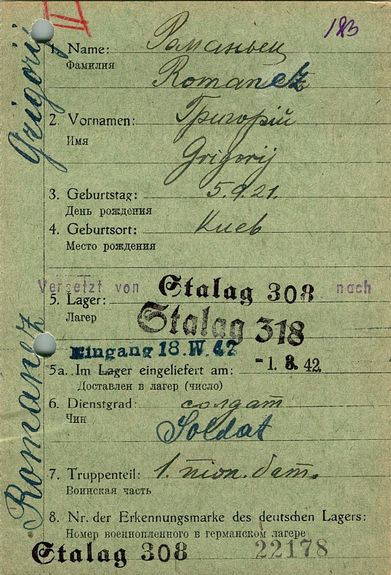 II
183
Grigorij Romanez
1. Name: Романьец
Фамилия Romanez
2. Vornamen: Григорій
Имя
Grigorij
3. Geburtstag: 5.9.21.
День рождения
4. Geburtsort: Киев
Место рождения
Versetzt von Stalag 308 nach
5. Lager: Stalag 318
Лагер
Eingang 18. IV. 42
-1. 8. 42
5a. Im Lager eingeliefert am:
Доставлен в лагер (число)
6. Dienstgrad: солдат
Чин Soldat
7. Truppenteil: 1. пион. бат.
Воинская часть
8. Nr. der Erkennungsmarke des deutschen Lagers:
Номер военнопленного в германском лагере
Stalag 308 22178